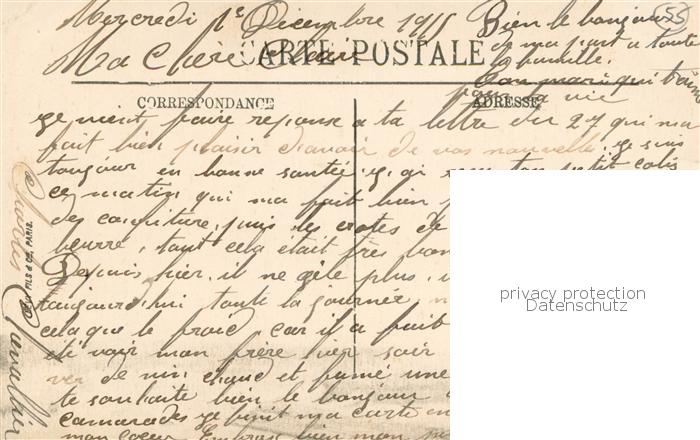 Mercredi 1e Décembre 1915
Ma Chère
Bien le bonjour
de ma part a toute
la famille.
Ton mari qui
pour la vie
55
CARTE POSTALE
CORRESPONDANCE
ADRESSE
je vient faire reponse a ta lettre du 27 qui ma
fait bien plaisir d'avoir de vos nouvelle. je suis
toujour en bonne santée. j ai ton petit colis
ce matin, qui ma fait bien
des confiture, puis les crotes de
beurré, tout cela était très bon
Depuis hier, il ne gèle plus, i
aujourd'hui toute la journée,
cela que le froid, car il a fait
été voir mon frère hier soir
de vin chaud et fumé une
te souhaite bien le bonjour
camarades je finit ma carte en
mon coeur. Embrase bien mon
Charles
PARIS.
privacy protection
Datenschutz